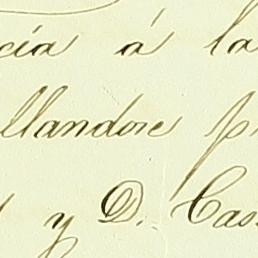 cia á la
llandose p
y D. Cas